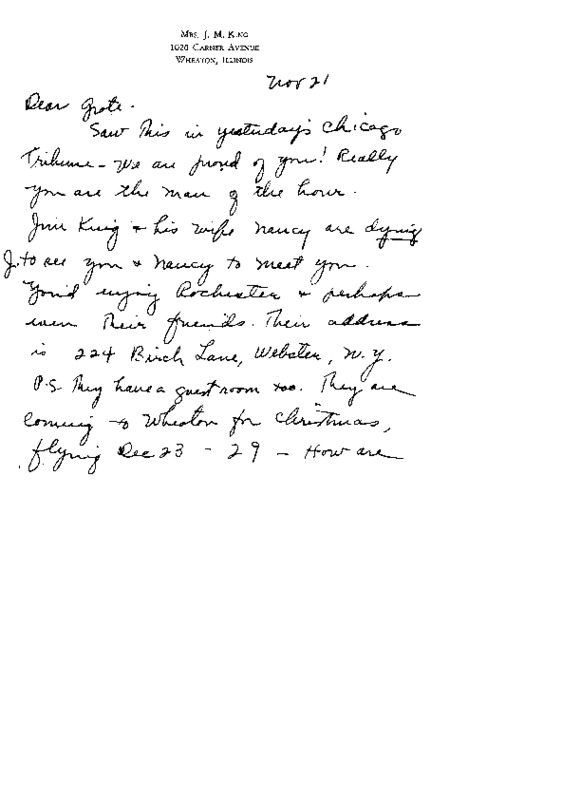 Mrs. J. M. King
1020 Garner Avenue
Wheaton, Illinois
Nov 21
Dear Grote.
Saw This in yesterday's Chicago
Tribune - We are proud of you! Really
you are the man of the hour.
Jim King & his wife Nancy are dying
J. to see you & Nancy to meet you.
You'd enjoy Rochester & perhaps
even Their friends. Their address
is 224 Birch Lane, Webster, N.Y.
P.S. They have a guest room too. They are
coming to Wheaton for Christmas,
flying Dec 23 - 29 - How are